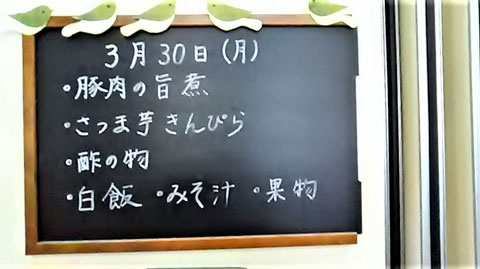 3月30日(月)
・豚肉の旨煮
・さつま芋きんぴら
・酢の物
・白飯 ・みそ汁 ・果物